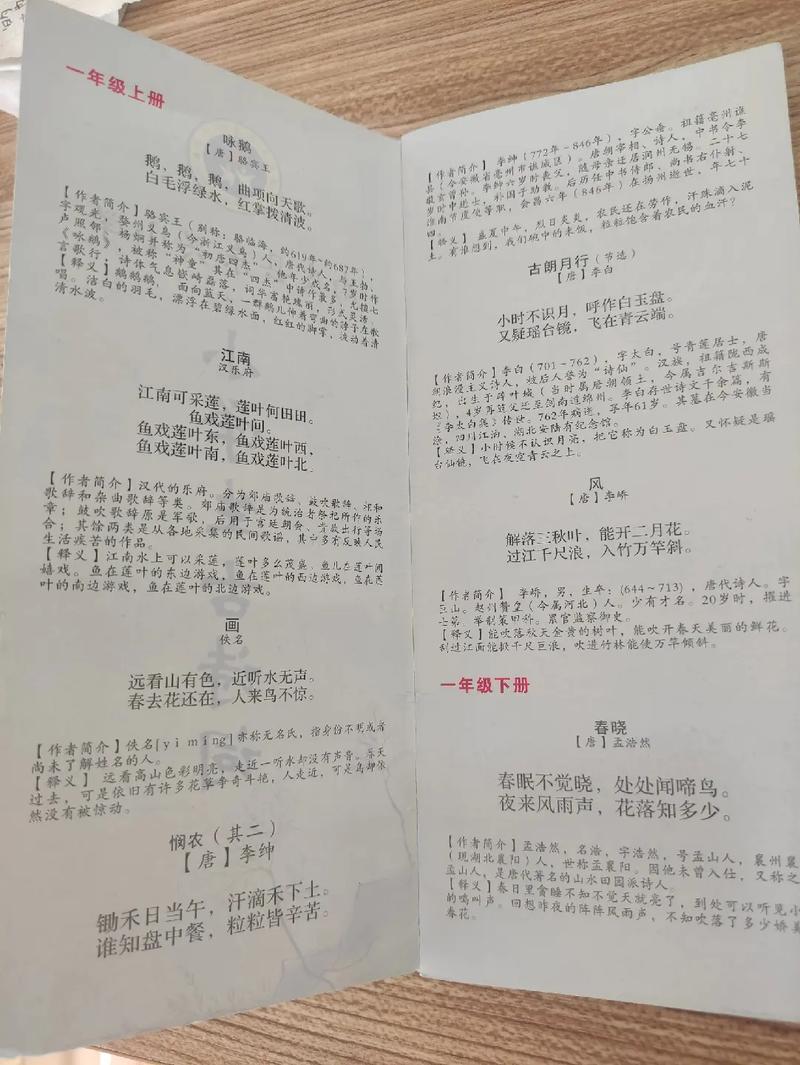 一年级上册
咏鹅
【唐】骆宾王
鹅，鹅，鹅，曲项向天歌。
白毛浮绿水，红掌拨清波。
【作者简介】骆宾王（别称：骆临海，约619年~约687年），
字观光，婺州义乌（今浙江义乌）人，唐代诗人，与王勃、
卢照邻、杨炯并称为“初唐四杰”。他年少成名，7岁时作
《咏鹅》，被称“神童”其在“四杰”中诗作最多，尤擅七
言歌行，诗体气息嵚崎磊落，词华富艳瑰丽，形式灵活。
【释义】鹅鹅鹅，面向蓝天，一群鹅儿伸着弯曲的脖子在歌
唱。洁白的羽毛，漂浮在碧绿水面，红红的脚掌，拨动着清
清水波。
江南
汉乐府
江南可采莲，莲叶何田田。
鱼戏莲叶间。
鱼戏莲叶东，鱼戏莲叶西，
鱼戏莲叶南，鱼戏莲叶北
【作者简介】汉代的乐府。分为郊庙歌辞、鼓吹歌辞、相和
歌辞和杂曲歌辞等类。郊庙歌辞是为统治者祭祀所作的乐
章；鼓吹歌辞原是军歌，后用于宫廷朝会、贵族出行等场
合；其馀两类是从各地采集的民间歌谣，其中多有反映人民
生活疾苦的作品。
【释义】江南水上可以采莲，莲叶多么茂盛，鱼儿在莲叶间
嬉戏。鱼在莲叶的东边游戏，鱼在莲叶的西边游戏，鱼在莲
叶的南边游戏，鱼在莲叶的北边游戏。
画
佚名
远看山有色，近听水无声。
春去花还在，人来鸟不惊。
【作者简介】佚名[yì míng]亦称无名氏，指身份不明或者
尚未了解姓名的人。
【释义】 远看高山色彩明亮，走近一听水却没有声音。春天
过去，可是依旧有许多花草争奇斗艳，人走近，可是鸟却依
然没有被惊动。
悯农（其二）
【唐】李绅
锄禾日当午，汗滴禾下土。
谁知盘中餐，粒粒皆辛苦。
【作者简介】李绅（772年~846年），字公垂。祖籍亳州谯
县（今安徽省亳州市谯城区）。唐朝宰相、诗人，中书令李
敬玄曾孙。李绅六岁时丧父，随母亲迁居润州无锡。二十七
岁时中进士，补国子助教。后历任中书侍郎、尚书右仆射、
淮南节度使等职，会昌六年（846年）在扬州逝世，年七十
四。
【释义】 盛夏中午，烈日炎炎，农民还在劳作，汗珠滴入泥
土。有谁想到，我们碗中的米饭，粒粒饱含着农民的血汗？
古朗月行（节选）
【唐】李白
小时不识月，呼作白玉盘。
又疑瑶台镜，飞在青云端。
【作者简介】李白（701－762），字太白，号青莲居士，唐
朝浪漫主义诗人，被后人誉为“诗仙”。汉族，祖籍陇西成
纪，出生于碎叶城（当时属唐朝领土，今属吉尔吉斯斯
坦），4岁再随父迁至剑南道绵州。李白存世诗文千余篇，有
《李太白集》传世。762年病逝，享年61岁。其墓在今安徽当
涂，四川江油、湖北安陆有纪念馆。
【释义】小时候不认识月亮，把它称为白玉盘。又怀疑是瑶
台仙镜，飞在夜空青云之上。
风
【唐】李峤
解落三秋叶，能开二月花。
过江千尺浪，入竹万竿斜。
【作者简介】 李峤，男，生卒：(644～713)，唐代诗人。字
巨山。赵州赞皇（今属河北）人。少有才名。20岁时，擢进
士第。举制策甲科。累官监察御史。
【释义】能吹落秋天金黄的树叶，能吹开春天美丽的鲜花。
刮过江面能掀千尺巨浪，吹进竹林能使万竿倾斜。
一年级下册
春晓
【唐】孟浩然
春眠不觉晓，处处闻啼鸟。
夜来风雨声，花落知多少。
【作者简介】孟浩然，名浩，字浩然，号孟山人，襄州襄
（现湖北襄阳）人，世称孟襄阳。因他未曾入仕，又称之
孟山人，是唐代著名的山水田园派诗人。
【释义】春日里贪睡不知不觉天就亮了，到处可以听见小
的鸣叫声。回想昨夜的阵阵风雨声，不知吹落了多少娇美
春花。